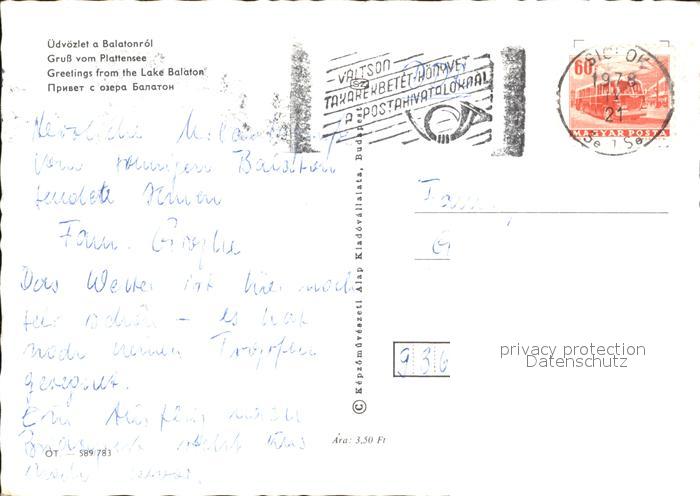 Üdvözlet a Balatonról
Gruß vom Plattensee
Greetings from the Lake Balaton
Привет с озера Балатон
VÁLTSON
TAKARÉKBETÉT-KÖNYVET
A POSTAHIVATALOKNÁL
SIÓFOK
1978
21
60f
MAGYAR POSTA
Herzliche
vom sonnigen Balaton
sendet Ihnen
Fam.
Das Wetter ist hier noch
sehr schön – es hat
noch keinen Tropfen
geregnet.
Ein Ausflug nach
Budapest steht uns
noch bevor.
Fam.
G
936
© Képzőművészeti Alap Kiadóvállalata, Budapest
privacy protection
Datenschutz
Ára: 3,50 Ft
OT — 589/783